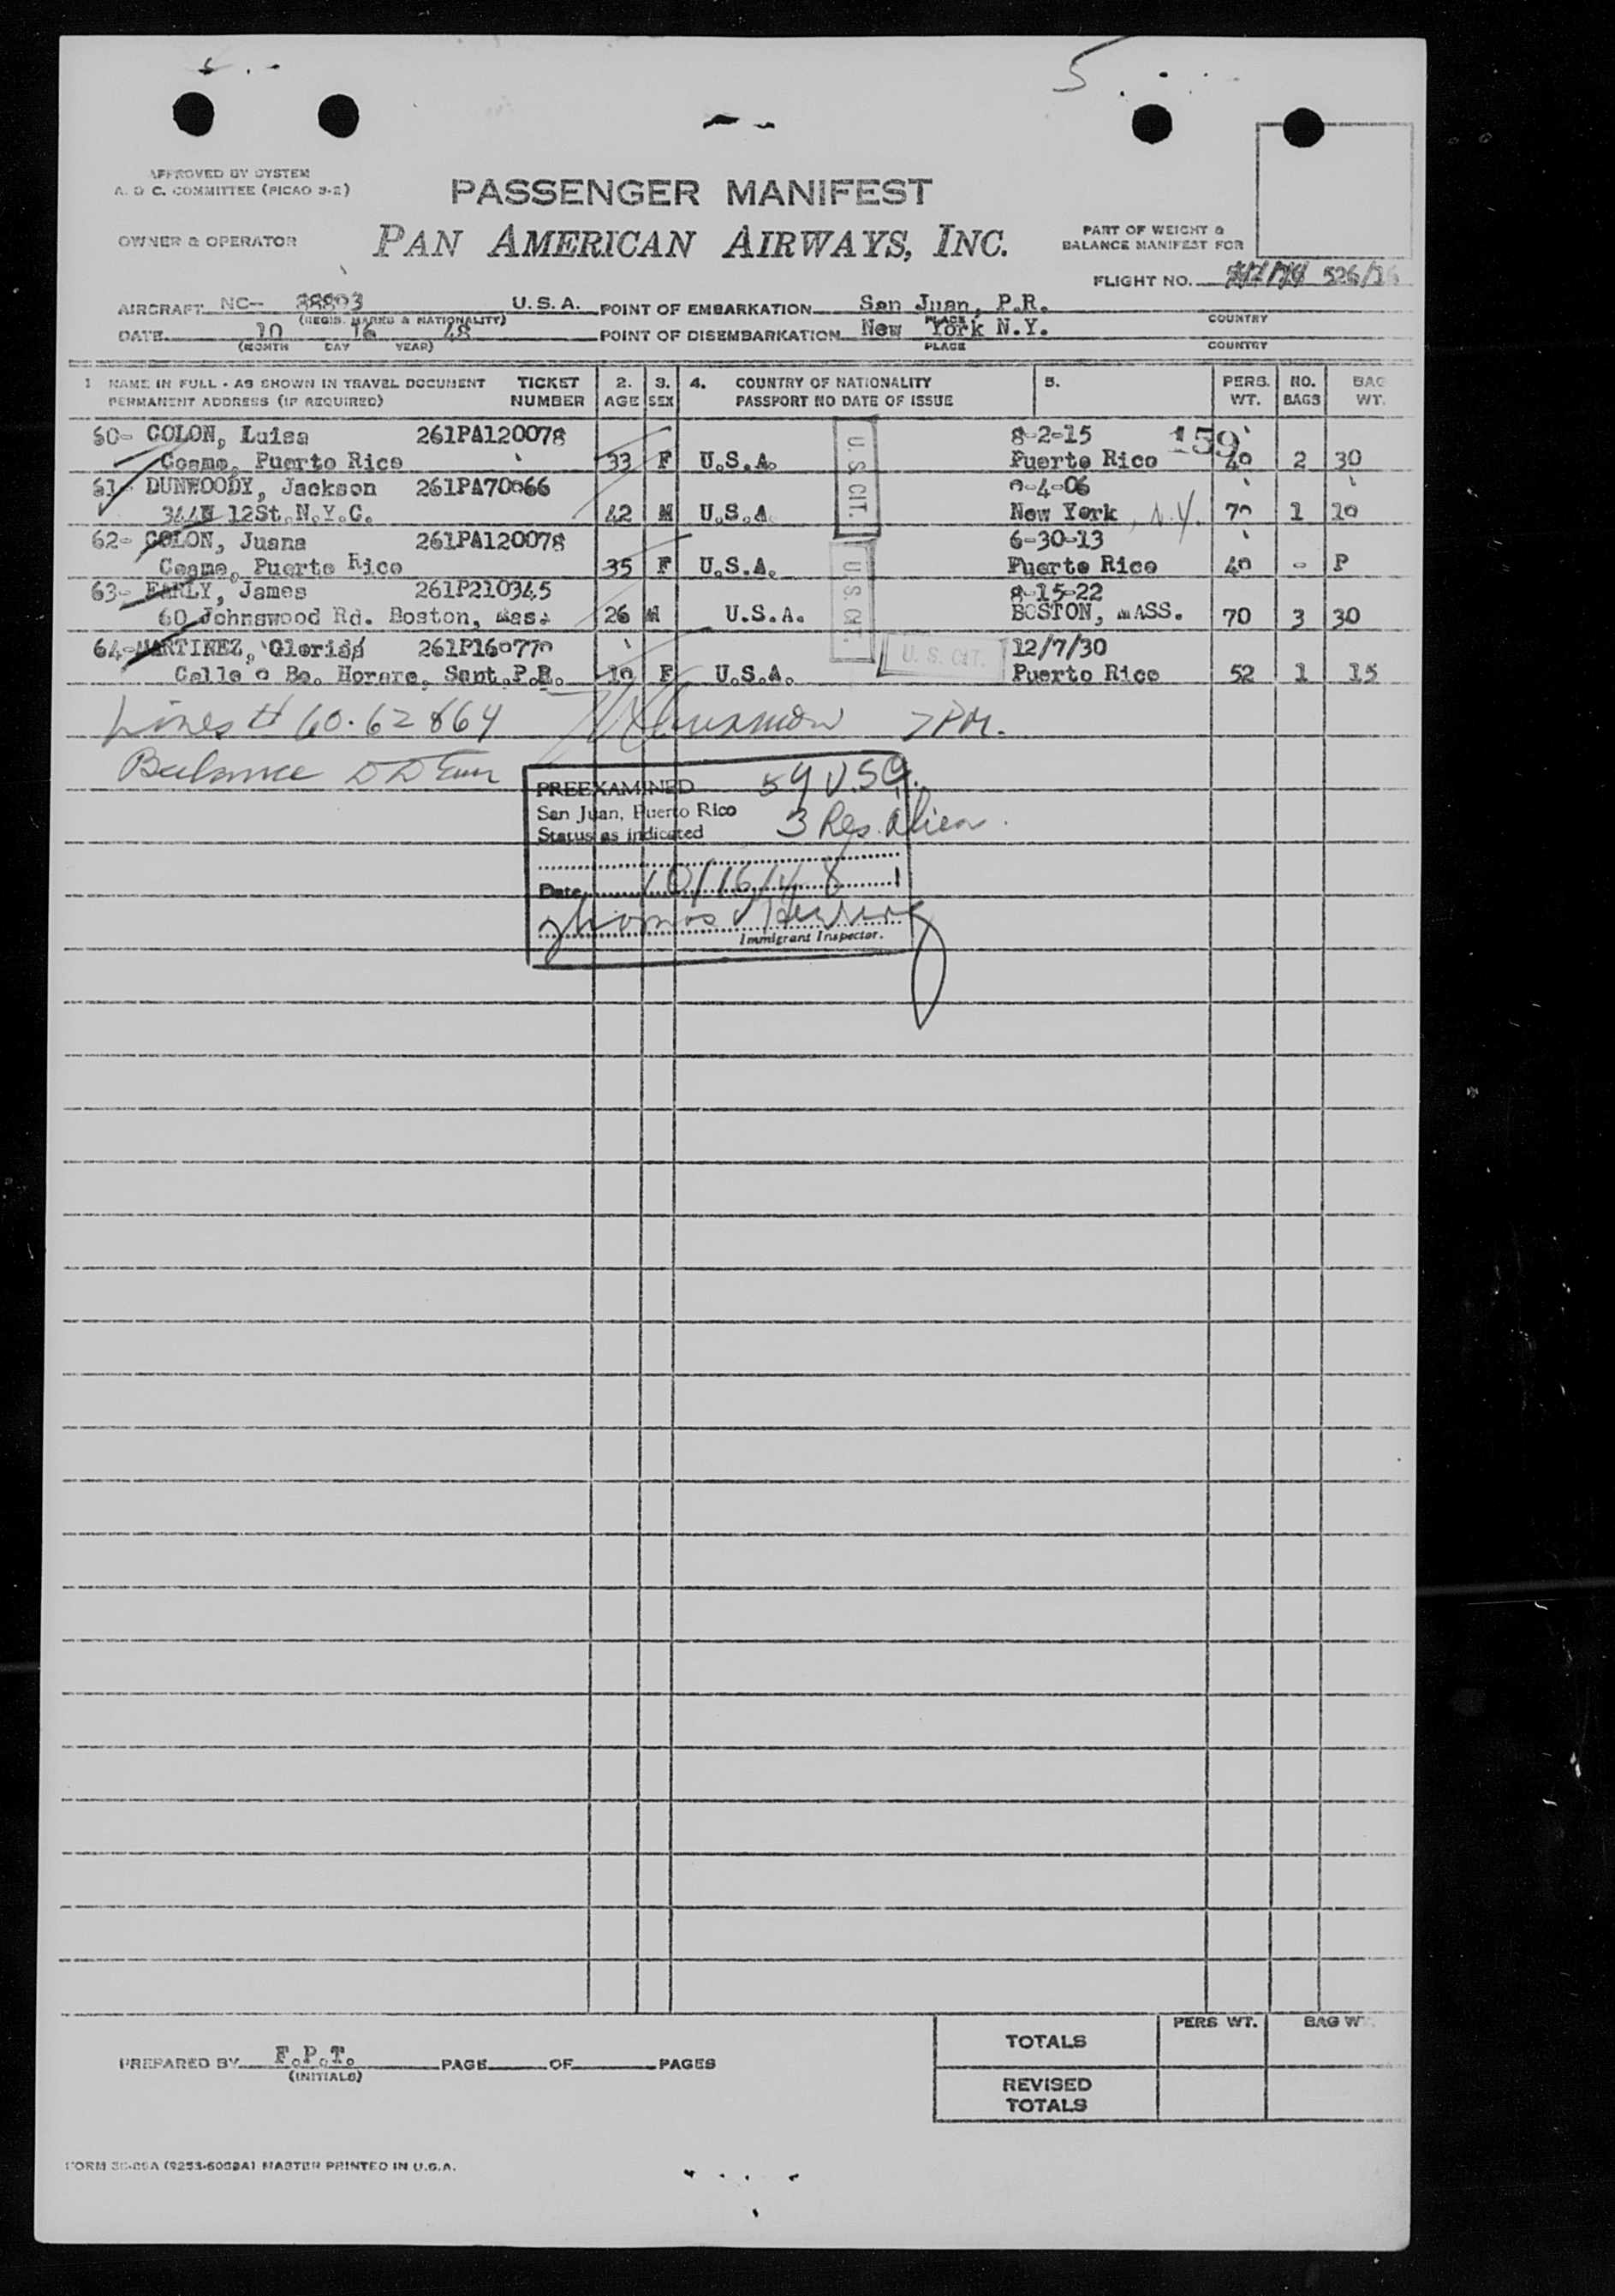 5
APPROVED BY SYSTEM
A. & C. COMMITTEE (PICAO 3-2)
PASSENGER MANIFEST
OWNER & OPERATOR
PAN AMERICAN AIRWAYS, INC.
PART OF WEIGHT &
BALANCE MANIFEST FOR
FLIGHT NO. 526/16
AIRCRAFT NC- 88893 U.S.A. POINT OF EMBARKATION San Juan, P.R.
(REGIS. MARKS & NATIONALITY) PLACE COUNTRY
DATE 10 16 48 POINT OF DISEMBARKATION New York N.Y.
(MONTH DAY YEAR) PLACE COUNTRY
1 NAME IN FULL - AS SHOWN IN TRAVEL DOCUMENT TICKET 2. 3. 4. COUNTRY OF NATIONALITY 5. PERS. NO. BAG
PERMANENT ADDRESS (IF REQUIRED) NUMBER AGE SEX PASSPORT NO DATE OF ISSUE WT. BAGS WT.
60- COLON, Luisa 261PA120078 8-2-15 159
Coamo, Puerto Rico 33 F U.S.A. Puerto Rico 2 30
U.S. CIT.
61- DUNWOODY, Jackson 261PA70066
344W 12St. N.Y.C. 42 M U.S.A New York, N.Y. 70 1
62- COLON, Juana 261PA120078 6-30-13
Coamo, Puerto Rico 35 F U.S.A. Puerto Rico - P
U.S. CIT.
63- EARLY, James 261P210345 8-15-22
60 Johnswood Rd. Boston, Mass. 26 M U.S.A. BOSTON, mASS. 70 3 30
64- MARTINEZ, Gloria 261P160770 12/7/30
U. S. CIT.
Calle Bo. Sant. P.R. F U.S.A. Puerto Rico 52 1 15
Lines # 60. 62 & 64 7 PM.
Balance
PREEXAMINED 59 USC.
San Juan, Puerto Rico 3 Res. Alien.
Status as indicated
Date 10/16/48
Thomas
Immigrant Inspector.
TOTALS PERS WT. BAG W
PREPARED BY F.P.T. PAGE OF PAGES
(INITIALS)
REVISED
TOTALS
MASTER PRINTED IN U.S.A.